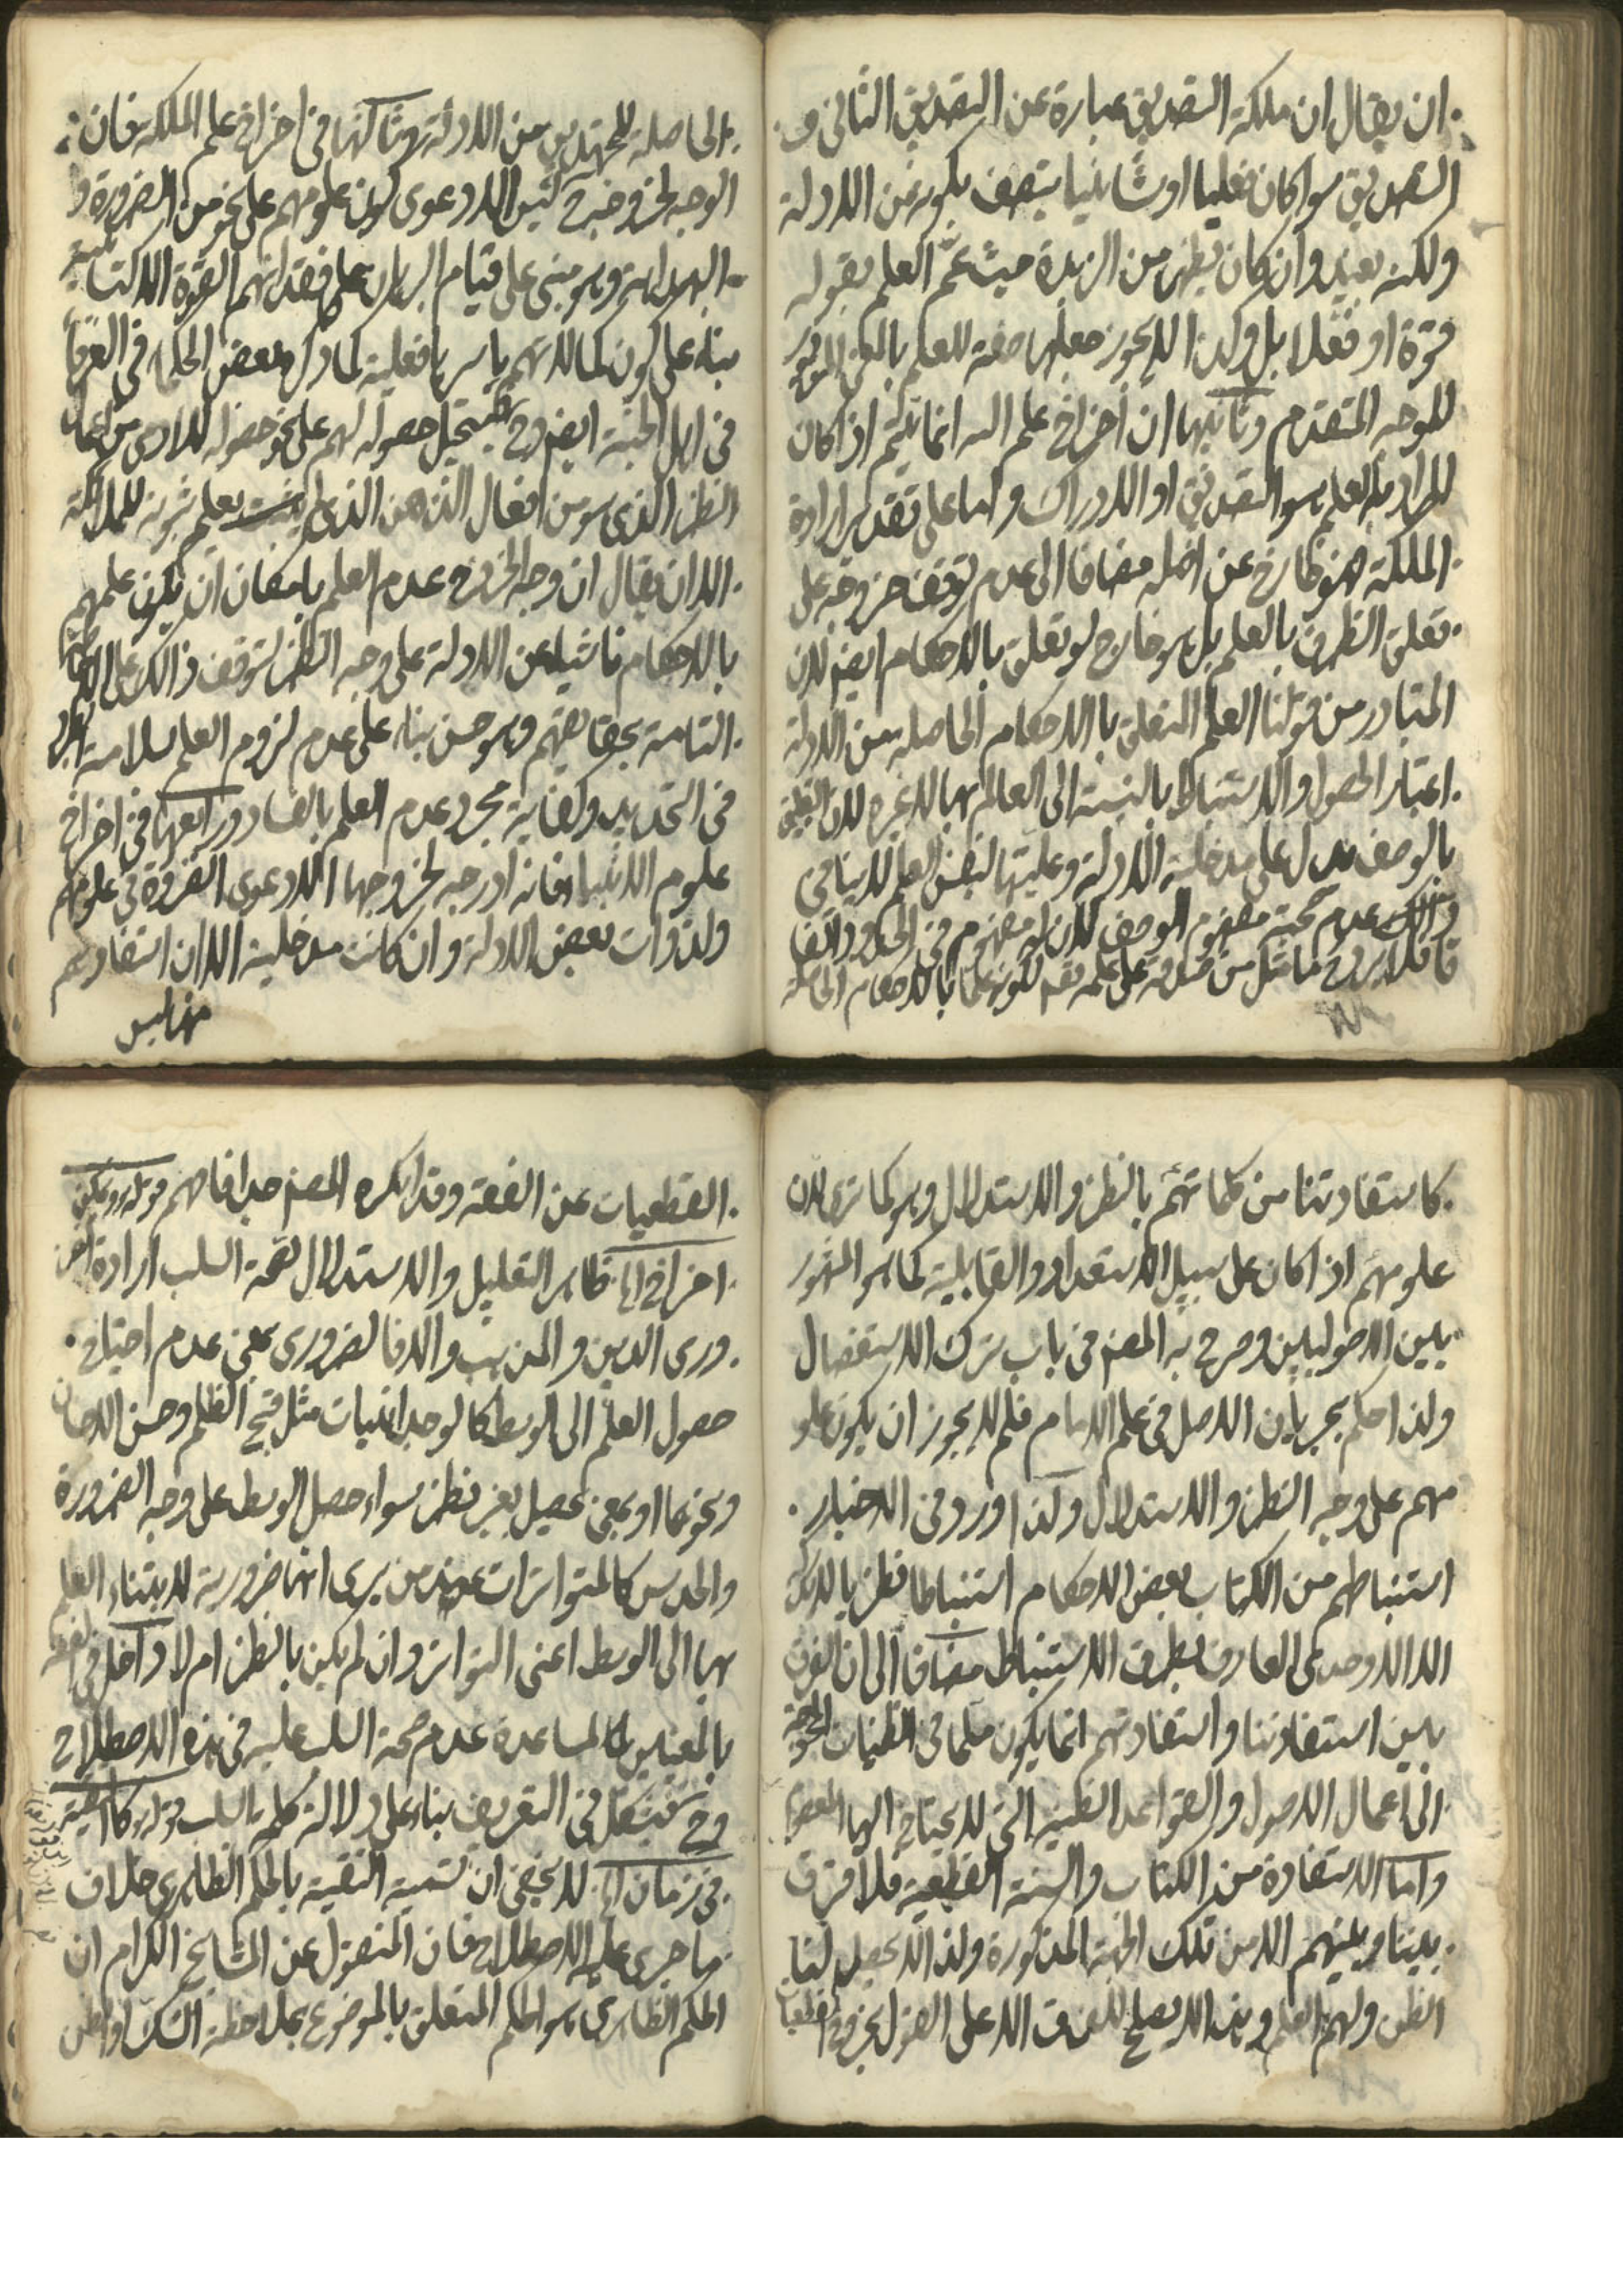 ان يقال ان ملكة التصديق عبارة عن التصديق الثاني و
التصديق سواء كان فعليا او شأنيا يتصف بكونه عن الادلة
ولكنه بعيد وان كان يظهر من الزبدة حيث عمّ العلم بقوله
قوة او فعلا بل ولذا لا يجوز جعلها صفة للعلم بالمعنى المزبور
للوجه المتقدم وثانيها ان اخراج علم الله انما يتم اذا كان
المراد بالعلم هو التصديق او الادراك واما على تقدير ارادة
الملكة فهو خارج عن اصله مضافا الى عدم توقف خروجه على
تعلق الظرف بالعلم بل هو خارج لو تعلق بالاحكام ايضا لان
المتبادر من قولنا العلم المتعلق بالاحكام الحاصله عن الادلة
اعتبار الحصول والاستنباط بالنسبة الى العالم بها لا غيره لان
بالوصف يدل على مدخلية الادلة وعليتها لنفس العلم
وذلك عدم حجية مفهوم الوصف لان له مفهوم في الحدود اتفاقا
الحاصلة للمجتهدين من الادلة وثالثها في اخراج علم الملئكه فان
الوجه لخروجه ح ليس الا دعوى كون علومهم على نحو من الضرورة و
البداهة وهو مبني على قيام البرهان على فقدانهم القوة الاكتسابية
بناء على كون كمالاتهم باسرها فعلية كما دل بعض الحكماء في العرفا
في اهل الجنة ايضا وح يستحيل حصوله لهم على نحو حصوله للادمي من اعمال
النظر الذي هو من افعال الذهن الذي لم يثبت بعلم ثبوته للملائكة
الا ان يقال ان وجه الخروج عدم العلم بامكان ان يكون علمهم
بالاحكام ناشيا عن الادلة على وجه النظر لتوقف ذلك على الاحاطة
التامة بحقايقهم وهو حسن بناء على عدم لزوم العلم بسلامة الحد
في التحديد وكفاية مجرد عدم العلم بالفساد ورابعها في اخراج
علوم الانبياء فانه لا وجه لخروجها الا دعوى الضرورة في علومهم
ولذوات بعض الادلة وان كانت مدخلية الا ان استفادتهم
منها ليس
كاستفادتنا من كلماتهم بالنظر والاستدلال وهو كما ترى لان
علومهم اذا كان على سبيل الاستعداد والقابلية كما هو المشهور
بين الاصوليين وصرح به المصنف في باب ترك الاستفصال
ولذا حكم بجريان الاصل في علم الامام فلم لا يجوز ان يكون علو
مهم على وجه النظر والاستدلال ولذا ورد في الاخبار
استنباطهم من الكتاب بعض الاحكام استنباطا نظريا لا يدركه
الا الاوحدي العارف بطرق الاستنباط مضافا الى ان الفرق
بين استفادتنا واستفادتهم انما يكون مسلما في الظنيات المحوجة
الى اعمال الاصول والقواعد الظنية التي لا يحتاج اليها المعصوم
واما الاستفادة من الكتاب والسنة القطعية فلا فرق
بيننا وبينهم الا من تلك الجهة المذكورة ولذا لا يحصل لنا
الظن ولهم العلم وهذا لا يصلح للفرق الا على القول بخروج القطعيات
القطعيات عن الفقه وقد انكره المصنف جدا فافهم قوله ويمكن
اخراج اه ظاهر التعليل والاستدلال لصحة السلب ارادة الضر
وري الدين والمذهب والا فالضروري بمعنى عدم احتياج
حصول العلم الى الوسط كالوجدانيات مثل قبح الظلم وحسن الاحسان
ونحوهما او بمعنى تحصيل بغير نظر سواء حصل الوسط على وجه الضرورة
والحدس كالمتواترات عند من يرى انها ضرورية لابتناء العلم
بها الى الوسط اعني التواتر وان لم يكن بالنظر ام لا داخل في الفقه
بالمعنيين لمساعدة عدم صحة السلب عليه في هذه الاصطلاح
وح يشكل في التعريف بناء على دلالة كلمة بالسلب قوله كالتقية
في زمان اه لا يخفى ان تسمية التقية بالحكم الظاهري خلاف
ما جرى عليه الاصطلاح فان المنقول عن المشايخ الكرام ان
الحكم الظاهري هو الحكم المتعلق بالموضوع بملاحظة الشك او الظن